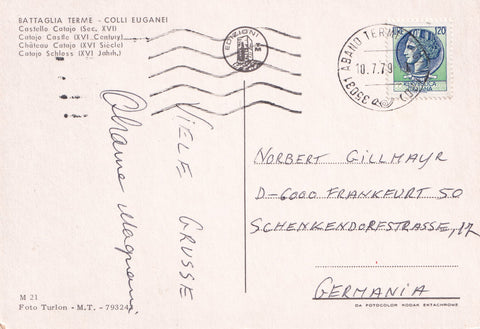 BATTAGLIA TERME - COLLI EUGANEI
Castello Catajo (Sec. XVI)
Catajo Castle (XVI Century)
Château Catajo (XVI Siècle)
Catajo Schloss (XVI Jahrh.)
EDIZIONI
35031 ABANO TERME
10.7.79
120
VIELE GRUSSE
NORBERT GILLMAYR
D-6000 FRANKFURT 50
SCHENKENDORFSTRASSE, 17
GERMANIA
M 21
Foto Turlon - M.T. - 79324
DA FOTOCOLOR KODAK EKTACHROME